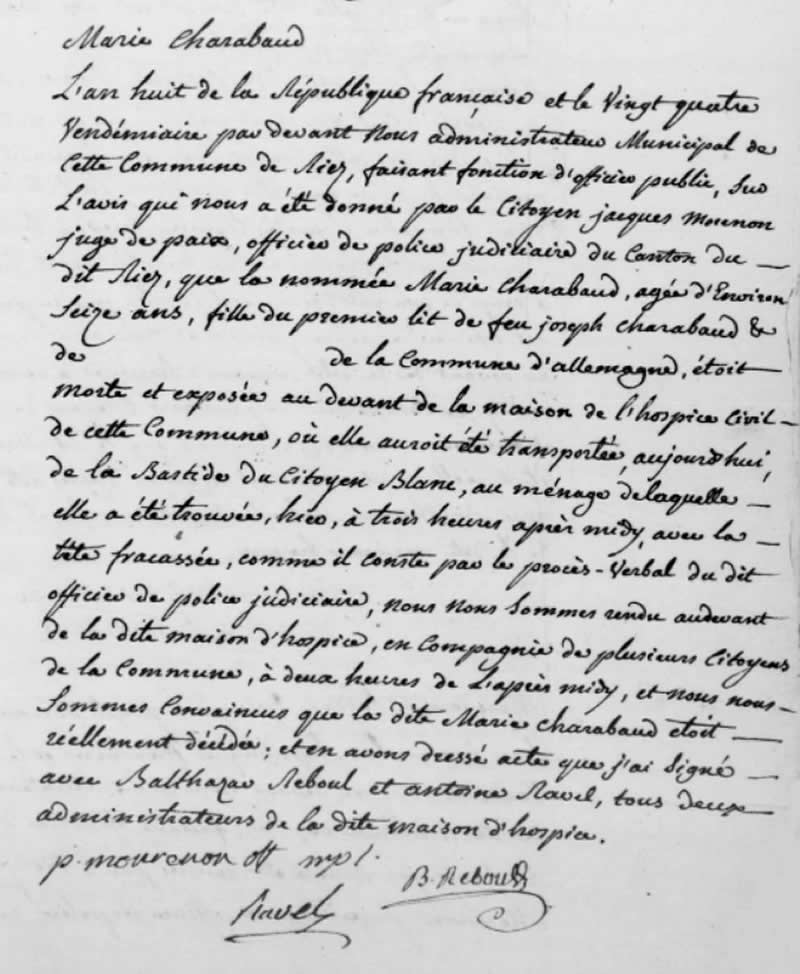 Marie Charabaud
L'an huit de la République française et le Vingt quatre
Vendémiaire par devant Nous administrateur Municipal de
Cette Commune de Riez, faisant fonction d'officier public, Sur
L'avis qui nous a été donné par le Citoyen jacques mourenon
juge de paix, officier de police judiciaire du Canton du —
dit Riez, que la nommée Marie Charabaud, agée d'Environ
Seize ans, fille du premier lit de feu joseph Charabaud &
de de la Commune d'allemagne, étoit —
morte et exposée au devant de la maison de l'hospice Civil —
de cette Commune, où elle auroit été transportée, aujourdhui,
de la Bastide du Citoyen Blanc, au ménage de laquelle —
elle a été trouvée, hier, à trois heures après midy, avec la —
tête fracassée, comme il conste par le procès-Verbal du dit
officier de police judiciaire, nous nous Sommes rendu audevant
de la dite maison d'hospice, en Compagnie de plusieurs Citoyens
de la Commune, à deux heures de L'après midy, et nous nous —
Sommes Convaincus que la dite Marie Charabaud étoit —
réellement décédée; et en avons dressé acte que j'ai Signé —
avec Balthazar Reboul et antoine Ravel, tous deux —
administrateurs de la dite maison d'hospice.
p. mourenon off mpl.
B. Reboul
Ravel